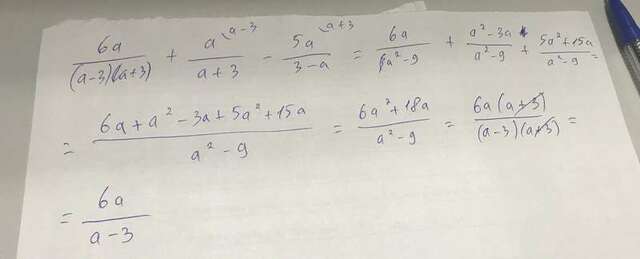 6a/((a-3)(a+3)) + a^(\a-3)/(a+3) - 5a^(\a+3)/(3-a) = 6a/(a²-9) + (a²-3a)/(a²-9) + (5a²+15a)/(a²-9) =
= (6a+a²-3a+5a²+15a)/(a²-9) = (6a²+18a)/(a²-9) = 6a(a+3)/((a-3)(a+3)) =
= 6a/(a-3)